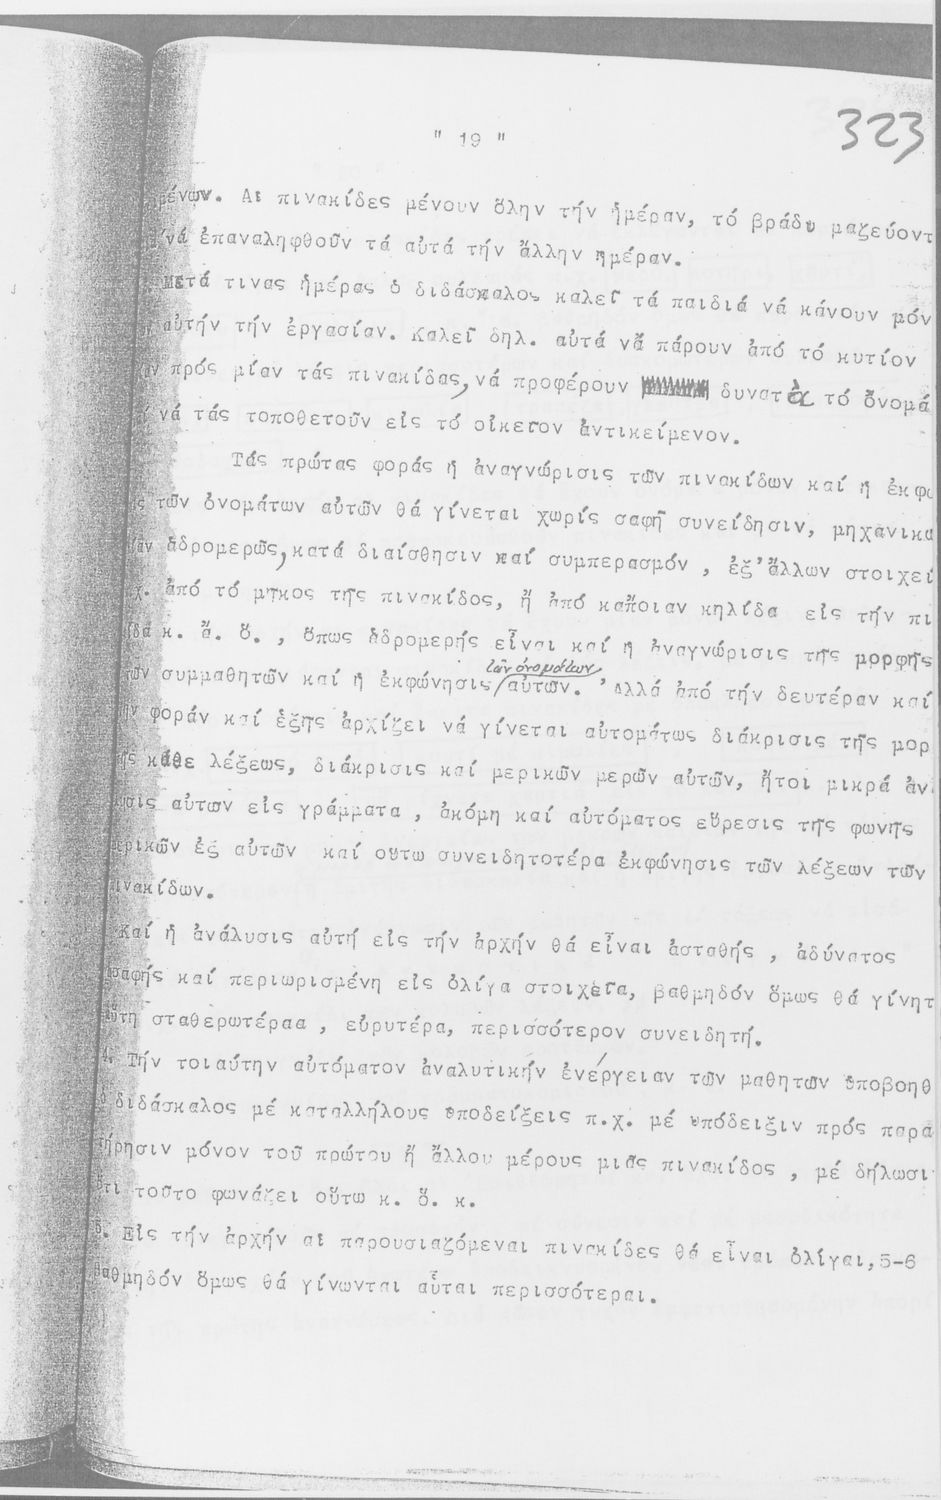 " 19 "
323
μένων. Αἱ πινακίδες μένουν ὅλην τήν ἡμέραν, τό βράδυ μαζεύοντ
νά ἐπαναληφθοῦν τά αὐτά τήν ἄλλην ημέραν.
Μετά τινας ἡμέρας ὁ διδάσκαλος καλεῖ τά παιδιά νά κάνουν μόν
αὐτήν τήν ἐργασίαν. Καλεῖ δηλ. αὐτά νᾶ πάρουν ἀπό τό κυτίον
πρός μίαν τάς πινακίδας, νά προφέρουν δυνατὰ τό ὄνομά
νά τάς τοποθετοῦν εἰς τό οἰκεῖον ἀντικείμενον.
Τάς πρώτας φοράς ἡ ἀναγνώρισις τῶν πινακίδων καί ἡ ἐκφω
ις τῶν ὀνομάτων αὐτῶν θά γίνεται χωρίς σαφῆ συνείδησιν, μηχανικα
ἁδρομερῶς, κατά διαίσθησιν καί συμπερασμόν , ἐξ'ἄλλων στοιχεί
χ. ἀπό τό μῆκος τῆς πινακίδος, ἤ ἀπό κἄποιαν κηλίδα εἰς τήν πι
ίδα κ. ἄ. ὅ. , ὅπως ἁδρομερής εἶναι καί ἡ ἀναγνώρισις τῆς μορφῆς
τῶν συμμαθητῶν καί ἡ ἐκφώνησις/αὐτῶν. 'Αλλά ἀπό τήν δευτέραν καί
τῶν ὀνομάτων
ην φοράν καί ἑξῆς ἀρχίζει νά γίνεται αὐτομάτως διάκρισις τῆς μορ
ῆς κάθε λέξεως, διάκρισις καί μερικῶν μερῶν αὐτῶν, ἤτοι μικρά ἀν
υσις αὐτων εἰς γράμματα , ἀκόμη καί αὐτόματος εὕρεσις τῆς φωνῆς
μερικῶν ἐξ αὐτῶν καί οὕτω συνειδητοτέρα ἐκφώνησις τῶν λέξεων τῶν
πινακίδων.
Καί ἡ ἀνάλυσις αὐτή εἰς τήν ἀρχήν θά εἶναι ἀσταθής , ἀδύνατος
ἀσαφής καί περιωρισμένη εἰς ὀλίγα στοιχεῖα, βαθμηδόν ὅμως θά γίνητ
αὕτη σταθερωτέραα , εὐρυτέρα, περισσότερον συνειδητή.
4. Τήν τοιαύτην αὐτόματον ἀναλυτικήν ἐνέργειαν τῶν μαθητῶν ὑποβοηθ
ὁ διδάσκαλος μέ καταλλήλους ὑποδείξεις π.χ. μέ ὑπόδειξιν πρός παρα
τήρησιν μόνον τοῦ πρώτου ἤ ἄλλου μέρους μιᾶς πινακίδος , μέ δήλωσι
ὅτι τοῦτο φωνάζει οὕτω κ. ὅ. κ.
5. Εἰς τήν ἀρχήν αἱ παρουσιαζόμεναι πινακίδες θά εἶναι ὀλίγαι,5-6
βαθμηδόν ὅμως θά γίνωνται αὗται περισσότεραι.